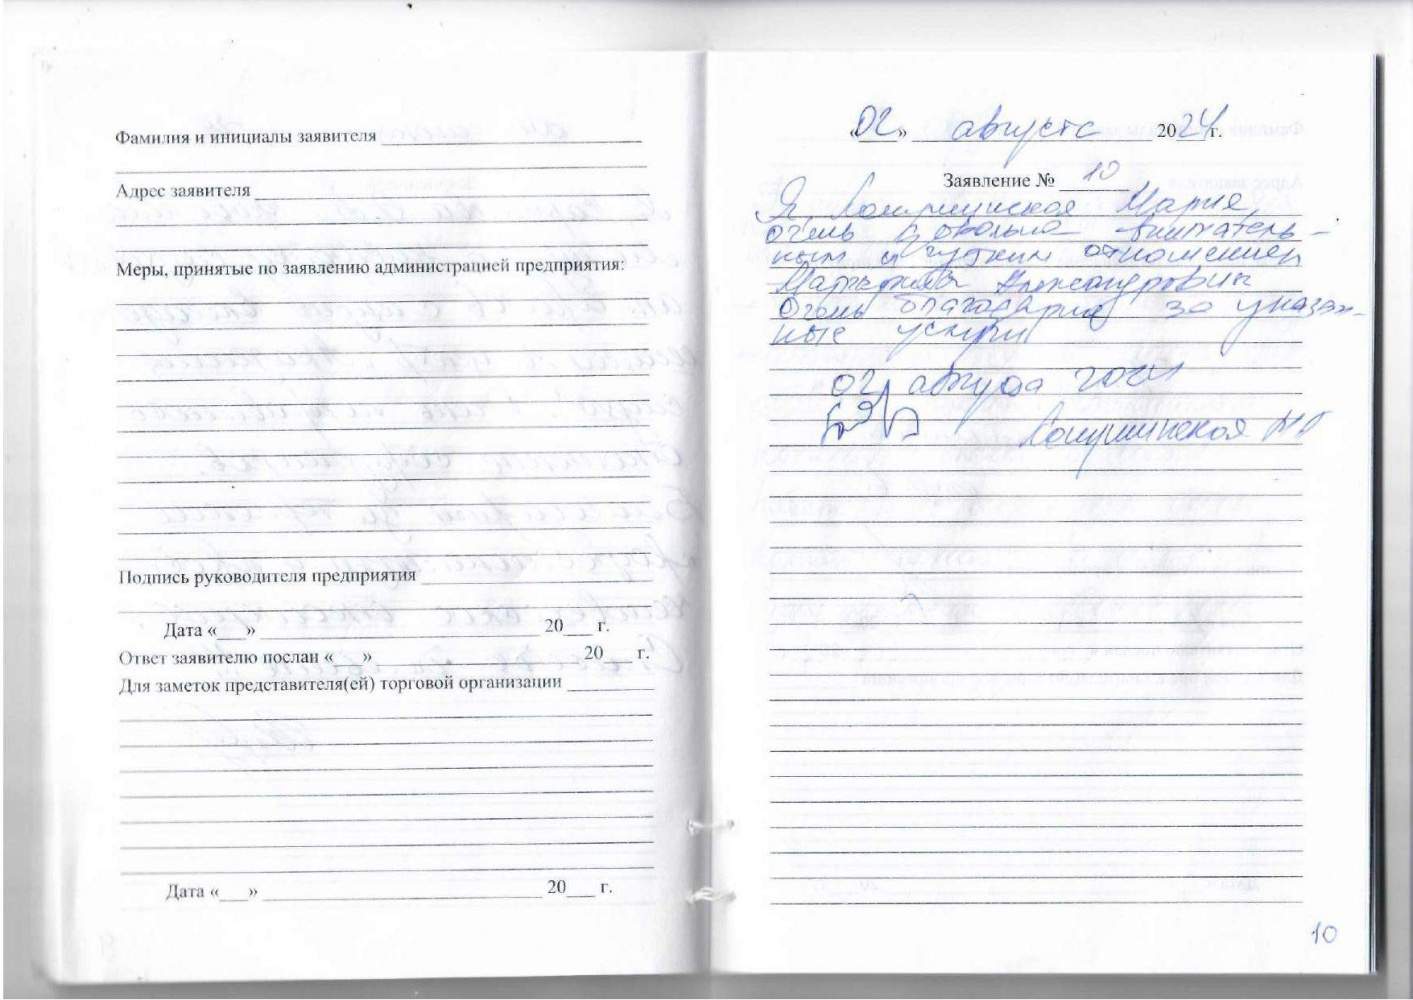 Фамилия и инициалы заявителя
Адрес заявителя
Меры, принятые по заявлению администрацией предприятия:
Подпись руководителя предприятия
Дата «___» 20___ г.
Ответ заявителю послан «___» 20___ г.
Для заметок представителя(ей) торговой организации
Дата «___» 20___ г.
«02» августа 2024г.
Заявление № 10
Я, Мария,
очень довольна вниматель-
ным и чутким отношением
Очень благодарна за указан-
ные услуги
02 августа 2024
10